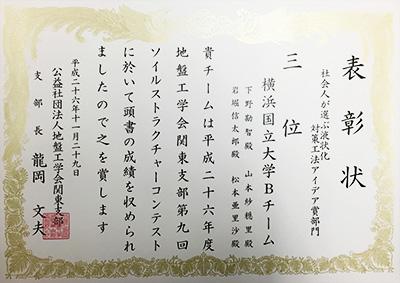 表彰状
社会人が選ぶ液状化
対策工法アイデア賞部門
三位
横浜国立大学Bチーム
下野勘智殿 山本紗穂里殿
岩堀信太郎殿 松本亜里沙殿
貴チームは平成二十六年度
地盤工学会関東支部第九回
ソイルストラクチャーコンテスト
に於いて頭書の成績を収められ
ましたので之を賞します
平成二十六年十一月二十九日
公益社団法人地盤工学会関東支部
支部長 龍岡文夫